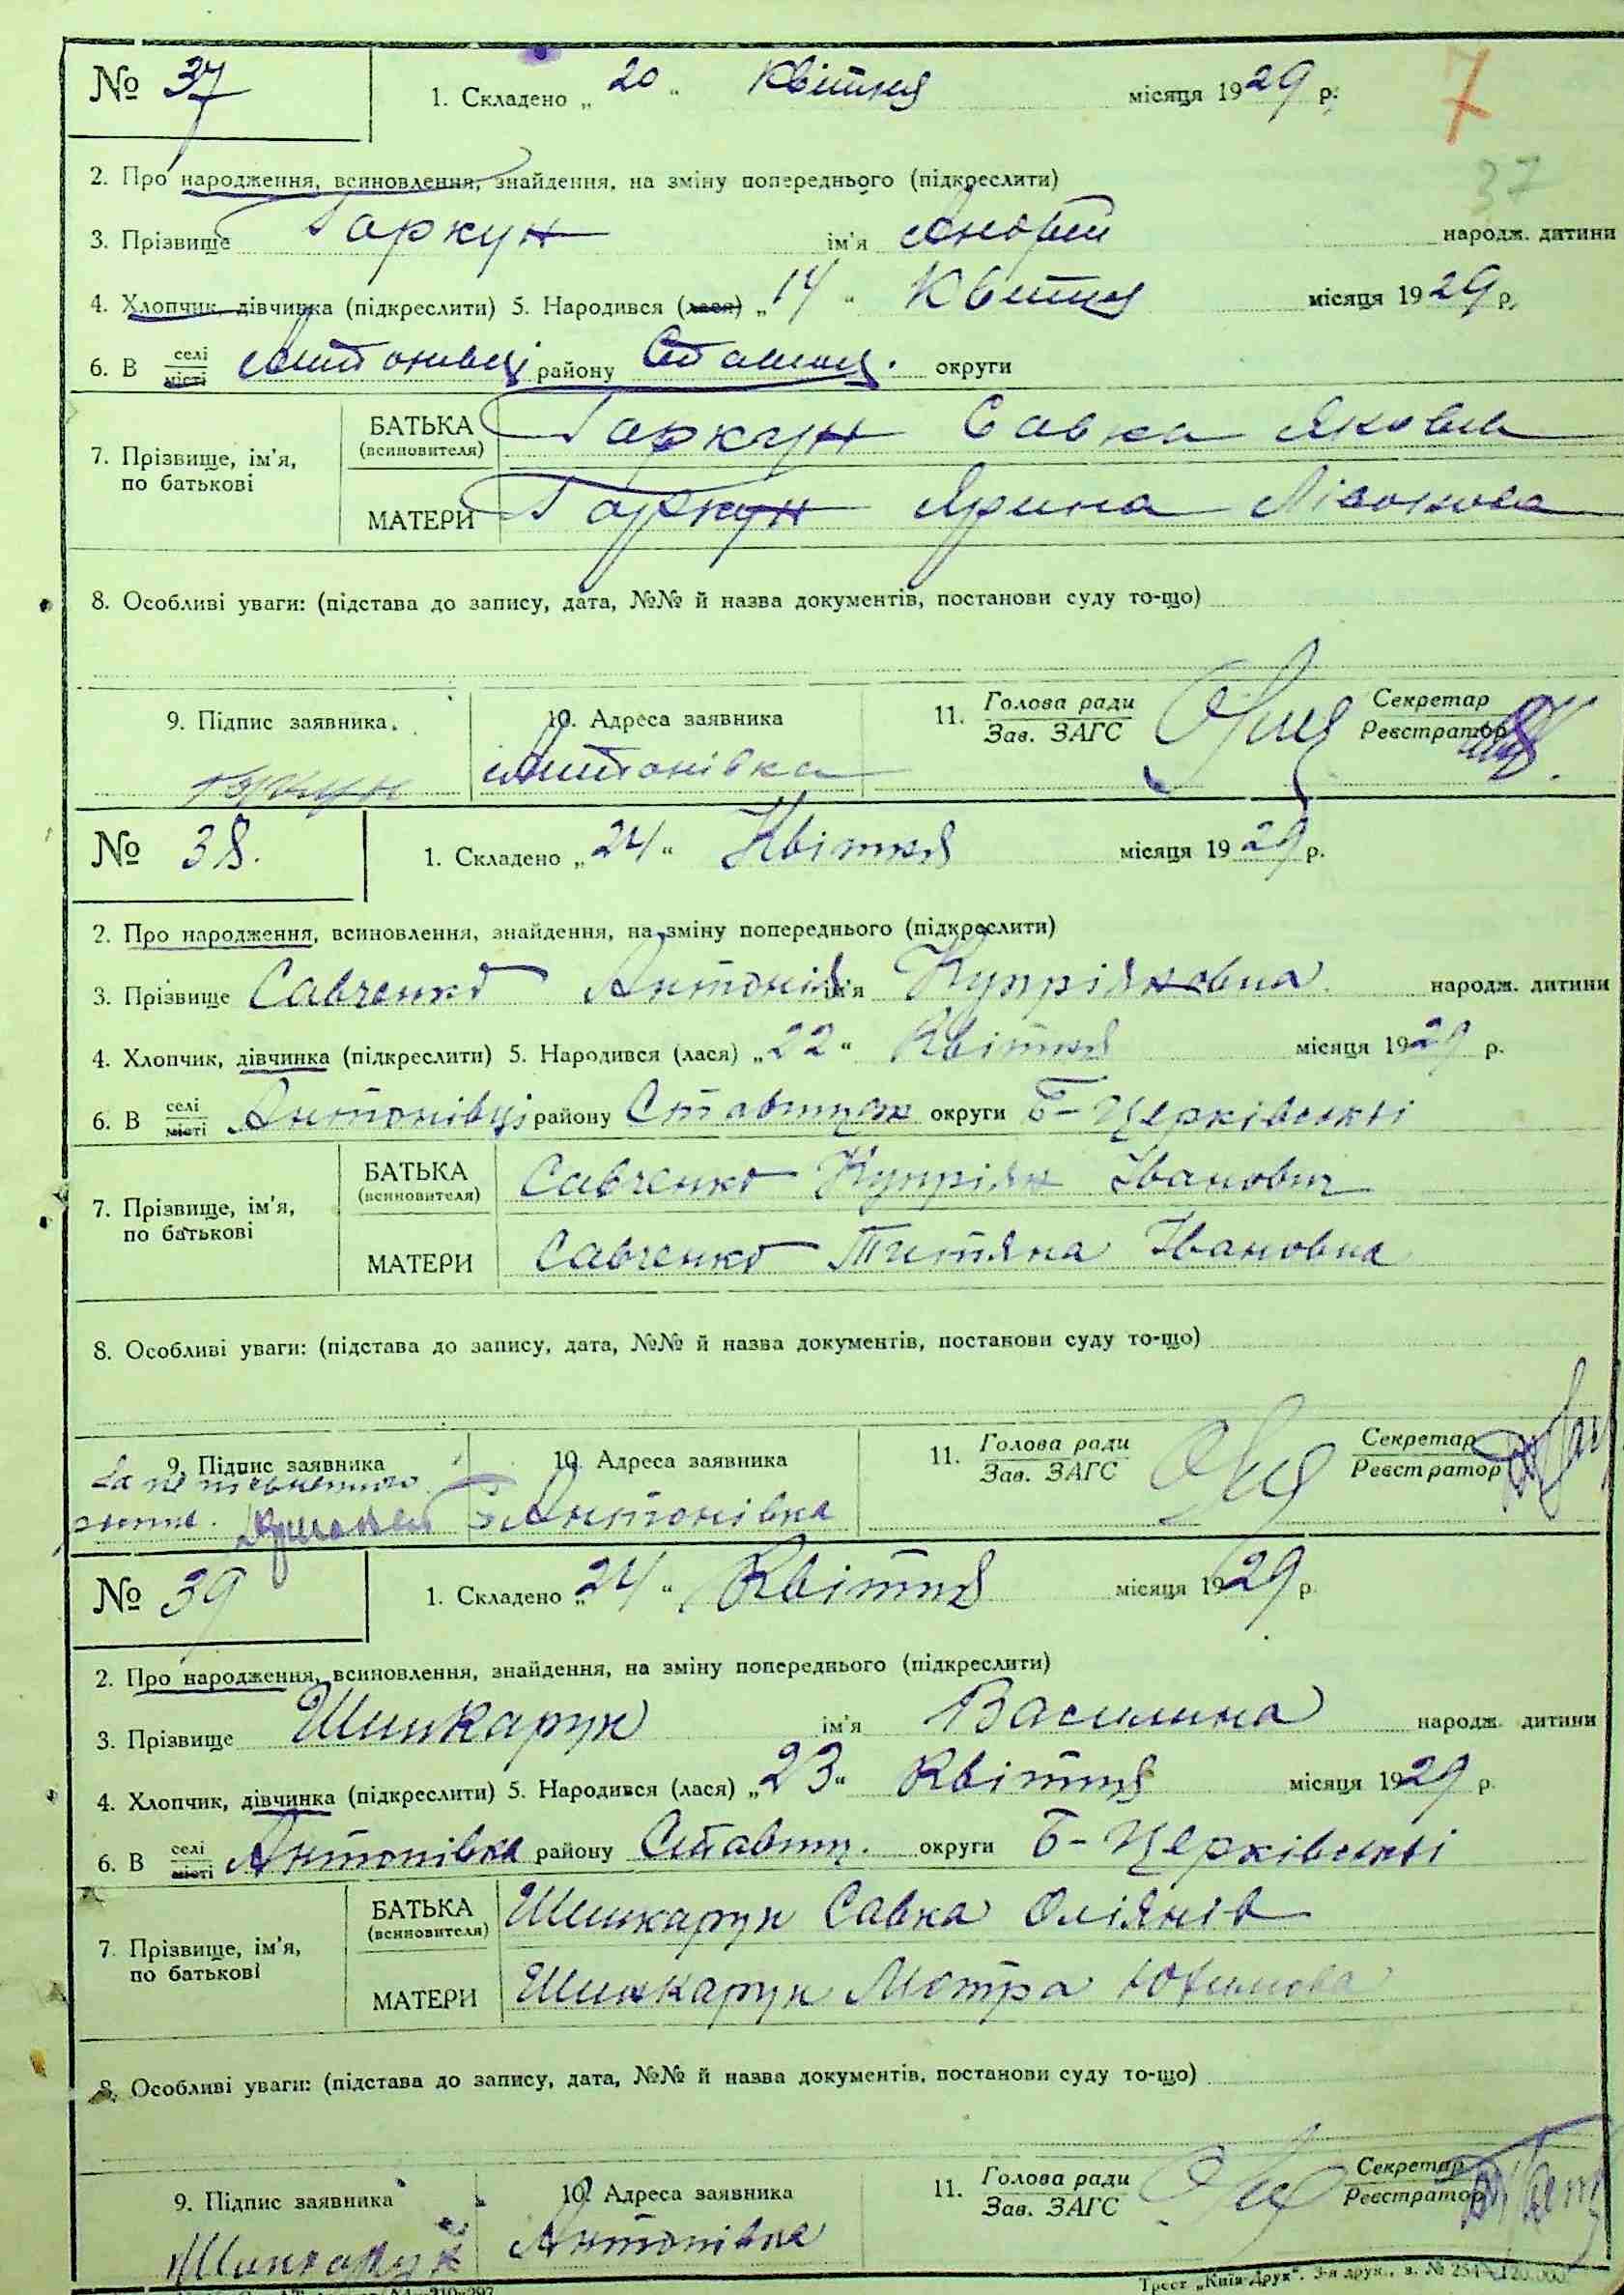 № 37 1. Складено „20“ Квітня місяця 1929 р. 7
2. Про народження, всиновлення, знайдення, на зміну попереднього (підкреслити) 37
3. Прізвище Гаркун ім'я Андрій народж. дитини
4. Хлопчик, дівчинка (підкреслити) 5. Народився (лася) „14“ Квітня місяця 1929 р.
6. В селі місті Антонівці району Ставищ. округи
7. Прізвище, ім'я, по батькові БАТЬКА (всиновителя) Гаркун Савка Яковів
МАТЕРИ Гаркун Ярина
8. Особливі уваги: (підстава до запису, дата, №№ й назва документів, постанови суду то-що)
9. Підпис заявника. 10. Адреса заявника 11. Голова ради Зав. ЗАГС Секретар Реєстратор
Гаркун Антонівка
№ 38. 1. Складено „24“ Квітня місяця 1929 р.
2. Про народження, всиновлення, знайдення, на зміну попереднього (підкреслити)
3. Прізвище Савченко Антонія ім'я Купріяновна народж. дитини
4. Хлопчик, дівчинка (підкреслити) 5. Народився (лася) „22“ Квітня місяця 1929 р.
6. В селі місті Антонівці району округи Б-Церківськіі
7. Прізвище, ім'я, по батькові БАТЬКА (всиновителя) Савченко Купріян Іванович
МАТЕРИ Савченко Титяна Івановна
8. Особливі уваги: (підстава до запису, дата, №№ й назва документів, постанови суду то-що)
9. Підпис заявника 10. Адреса заявника 11. Голова ради Зав. ЗАГС Секретар Реєстратор
За не письменного Антонівка
№ 39 1. Складено „24“ Квітня місяця 1929 р.
2. Про народження, всиновлення, знайдення, на зміну попереднього (підкреслити)
3. Прізвище Шинкарук ім'я Василина народж. дитини
4. Хлопчик, дівчинка (підкреслити) 5. Народився (лася) „23“ Квітня місяця 1929 р.
6. В селі місті Антонівка району Ставищ. округи Б-Церківськіі
7. Прізвище, ім'я, по батькові БАТЬКА (всиновителя) Шинкарук Савка Оліянів
МАТЕРИ Шинкарук Мотра Юхимова
8. Особливі уваги: (підстава до запису, дата, №№ й назва документів, постанови суду то-що)
9. Підпис заявника 10. Адреса заявника 11. Голова ради Зав. ЗАГС Секретар Реєстратор
Шинкарук Антонівка
Трест „Київ-Друк“. 3-я друк., з. № 254